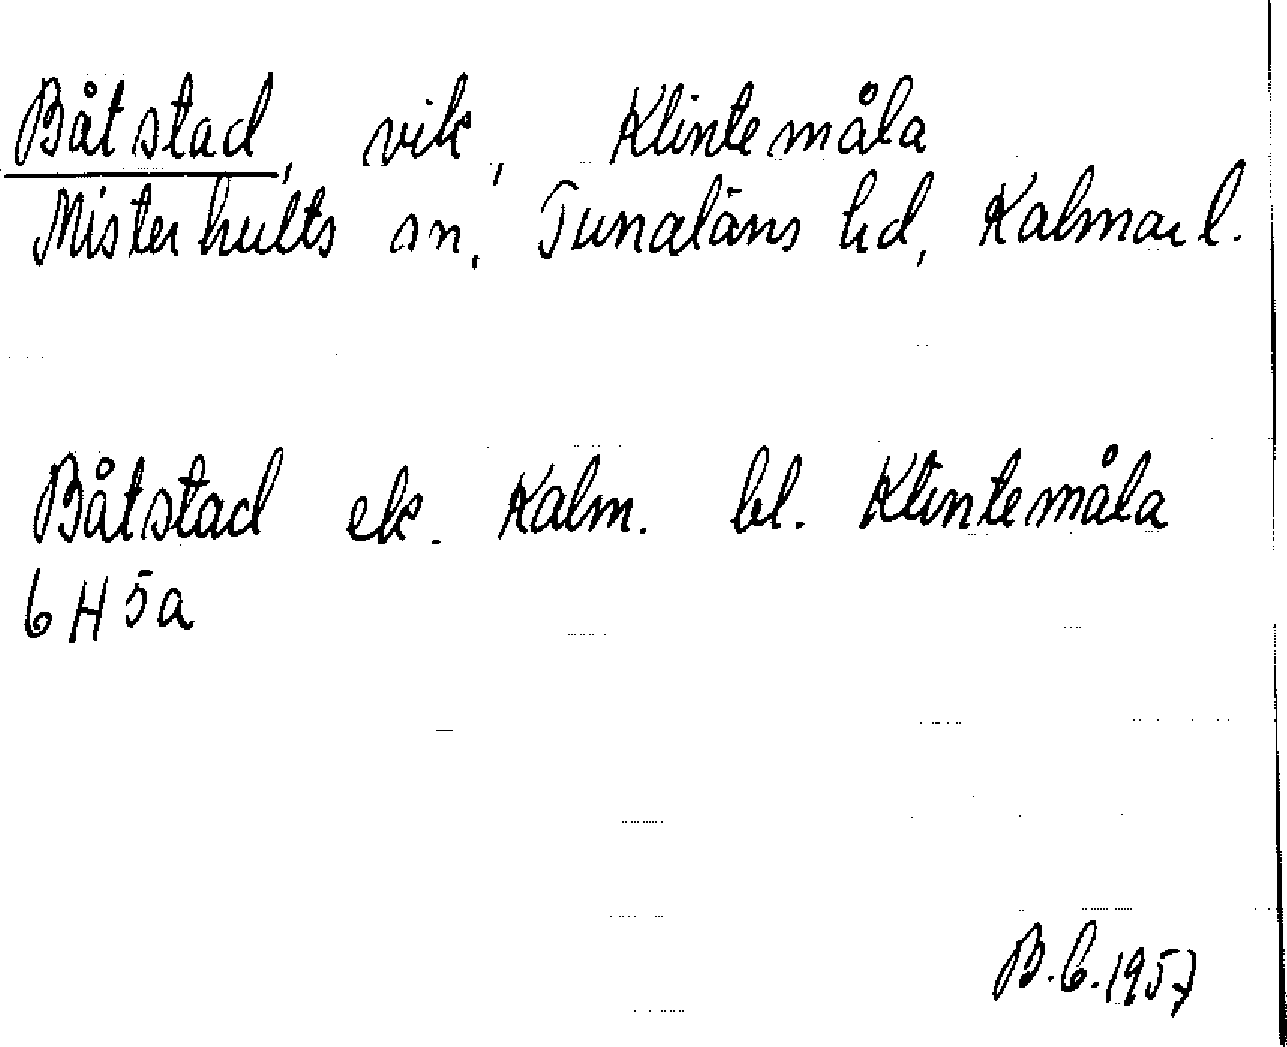 Båtstad, vik, Klintemåla
Misterhults sn, Tunaläns hd, Kalmar l.
Båtstad ek. Kalm. bl. Klintemåla
6H5a
B.C.1957